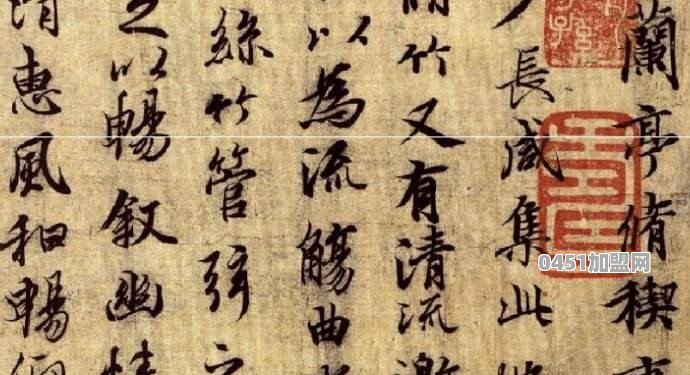 蘭亭脩稧
長咸集此
竹又有清流激
以為流觴曲
絲竹管弦之
以暢叙幽情
清惠風和暢
0451加盟网